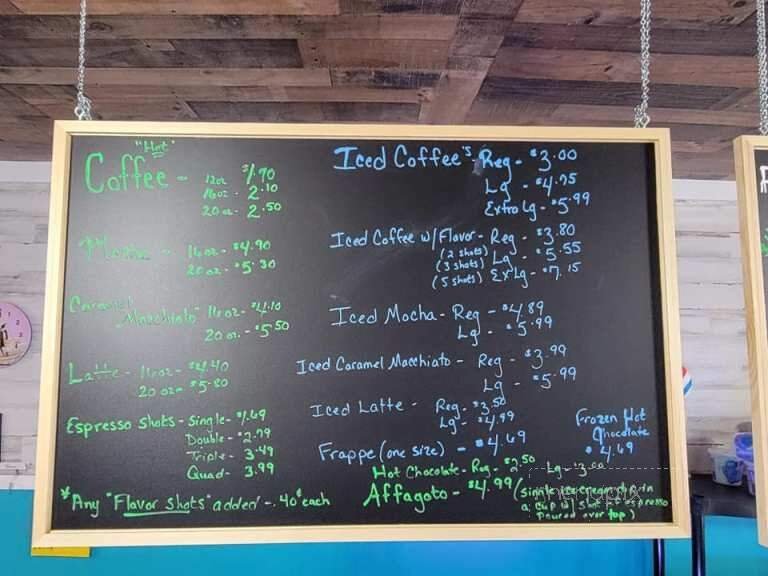 "Hot"
Coffee - 12oz $1.90
16oz - 2.10
20oz - 2.50
Mocha - 16oz - $4.90
20oz - $5.30
Caramel
Macchiato 16oz - $4.10
20oz. - $5.50
Latte - 16oz - $4.40
20oz - $5.80
Espresso Shots - Single - $1.69
Double - $2.79
Triple - 3.49
Quad - 3.99
*Any "Flavor Shots" added - .40¢ each
Iced Coffee's - Reg - $3.00
Lg - $4.75
Extra Lg - $5.99
Iced Coffee w/ Flavor - Reg - $3.80
(2 shots) Lg - $5.55
(3 shots)
(5 shots) Ex Lg - $7.15
Iced Mocha - Reg - $4.89
Lg - $5.99
Iced Caramel Macchiato - Reg - $3.99
Lg - $5.99
Iced Latte - Reg - $3.50
Lg - $4.99
Frappe (one size) - $4.69
Frozen Hot
Chocolate
$4.69
Hot Chocolate - Reg - $2.50 Lg - $3.00
Affagoto - $4.99 (Single
a cup w/ shot espresso
poured over top)